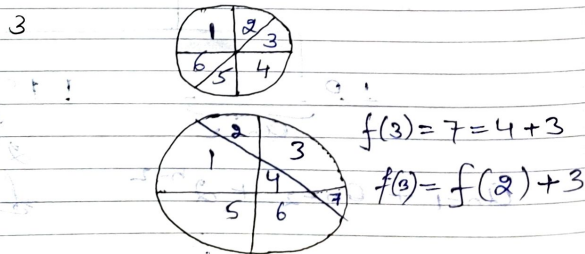 3
1 2
3
6 5 4
2
1 3
4
5 6 7
f(3) = 7 = 4 + 3
f(3) = f(2) + 3